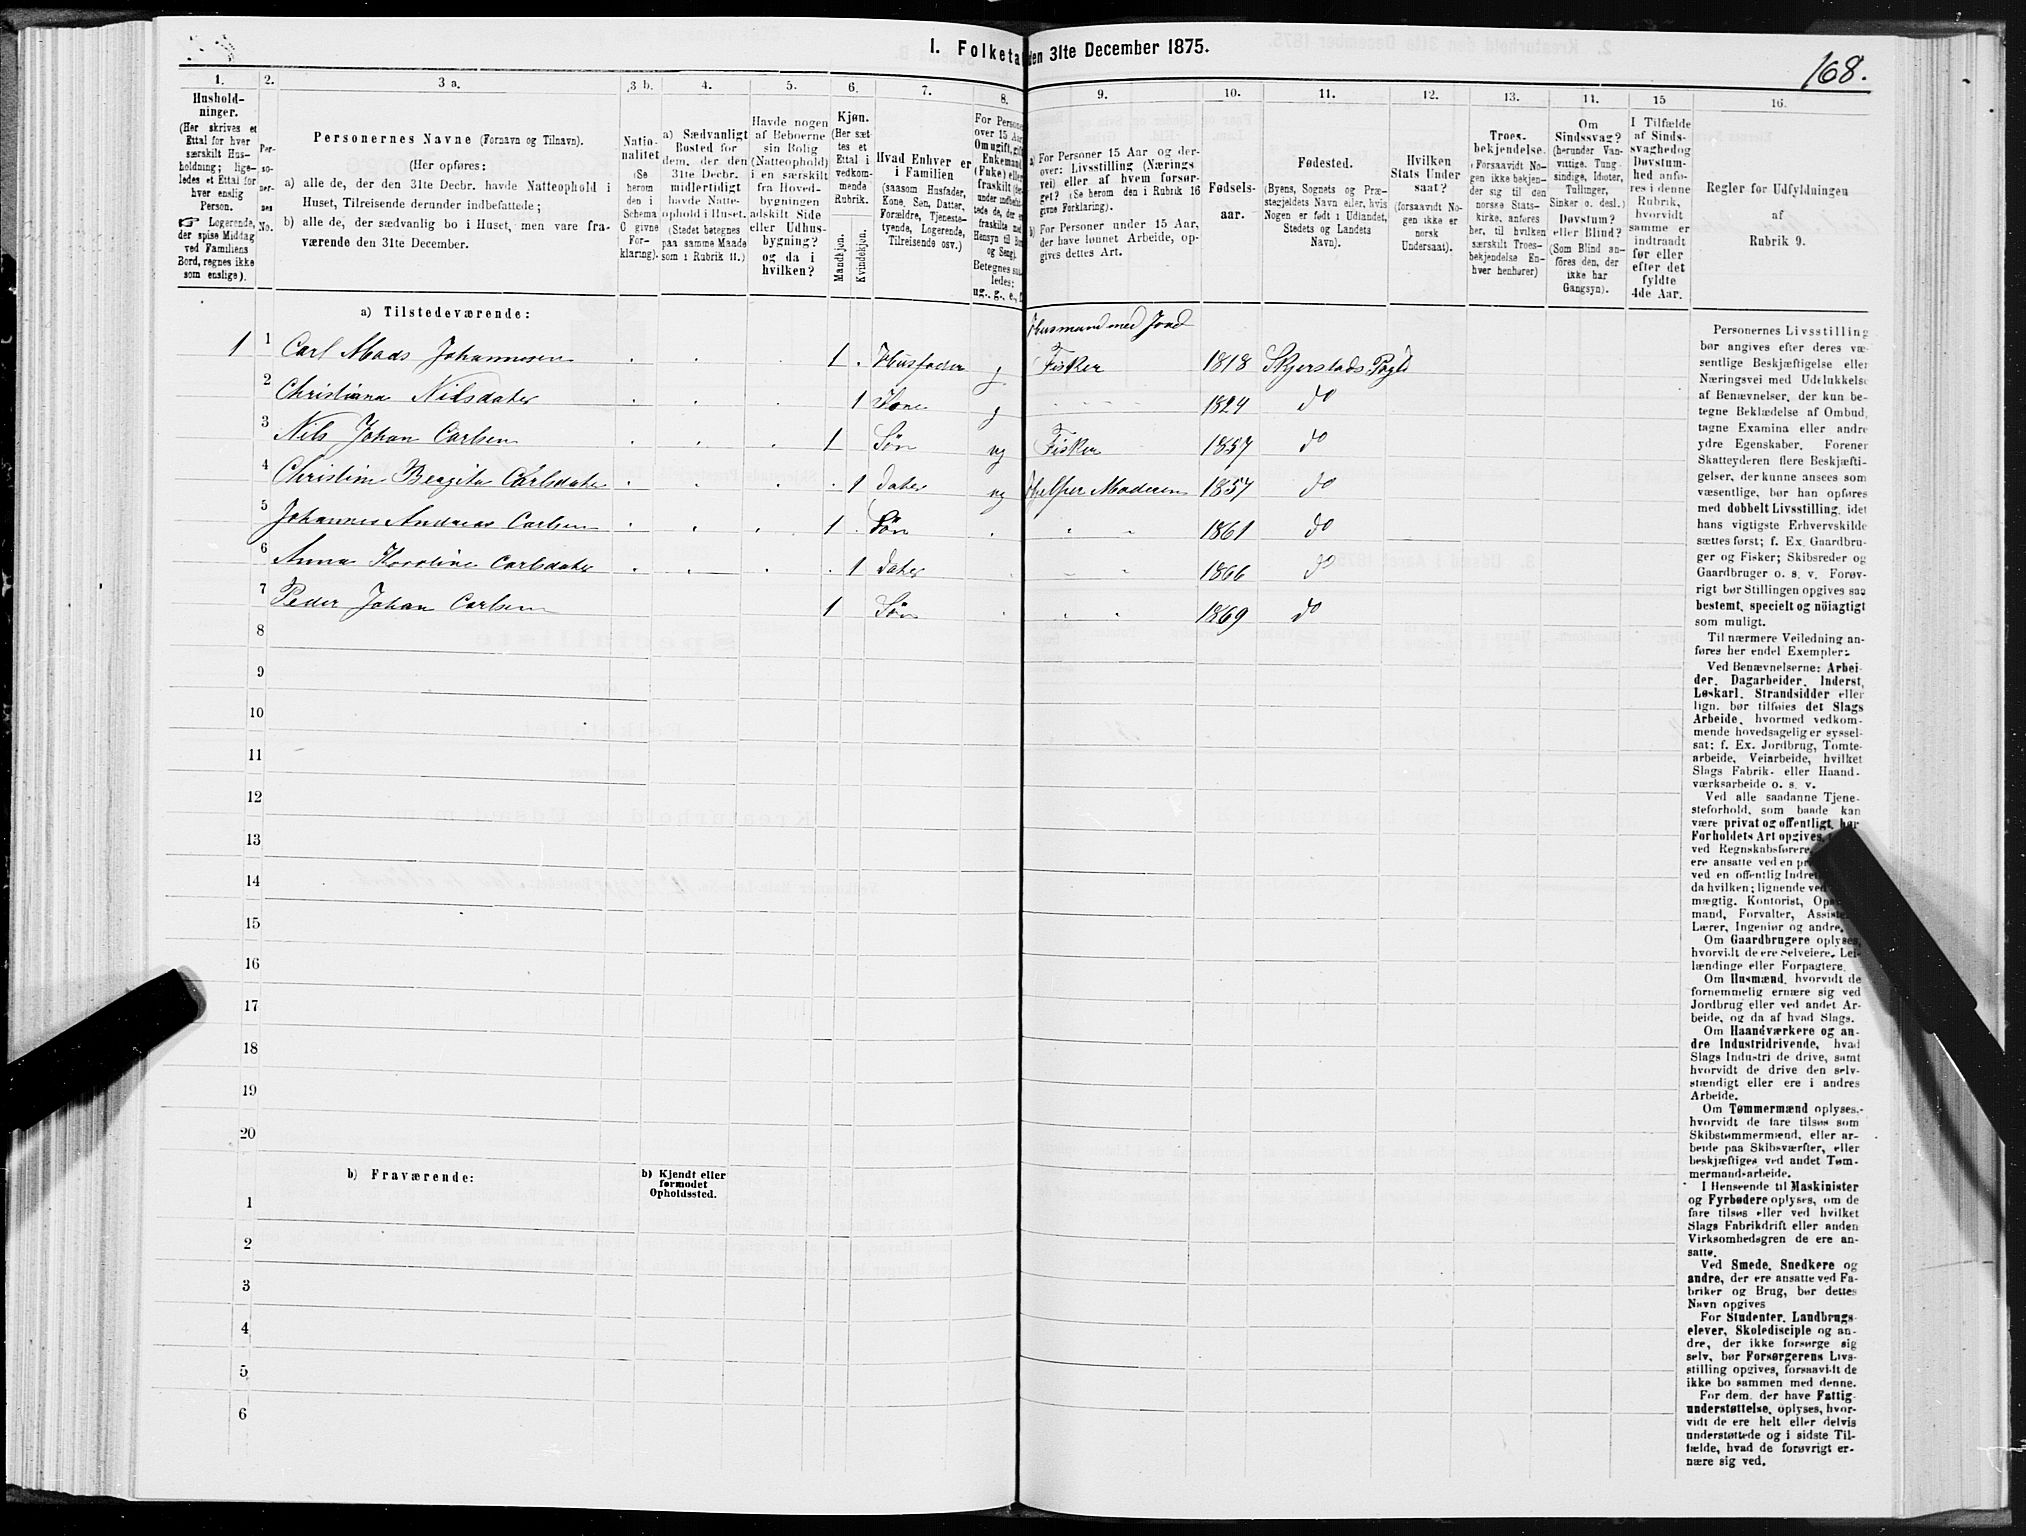 I. Folketa den 31te December 1875.
168.
1. 2. 3 a. 3 b. 4. 5. 6. 7. 8. 9. 10. 11. 12. 13. 14. 15 16.
Hushold-
ninger.
(Her skrives et
Ettal for hver
særskilt Hus-
holdning; lige-
ledes et Ettal for
hver enslig
Person.
☞ Logerende,
der spise Middag
ved Familiens
Bord, regnes ikke
som enslige).
Per-
so-
ner-
nes
No.
Personernes Navne (Fornavn og Tilnavn).
(Her opføres:
a) alle de, der den 31te Decbr. havde Natteophold i
Huset, Tilreisende derunder indbefattede;
b) alle de, der sædvanlig bo i Huset, men vare fra-
værende den 31te December.
Natio-
nalitet
(Se
herom
den i
Schema
C givne
For-
klaring).
a) Sædvanligt
Bosted for
dem, der den
31te Decbr.
midlertidigt
havde Natte-
ophold i Huset.
(Stedet betegnes
paa samme Maade
som i Rubrik 11.)
Havde nogen
af Beboerne
sin Bolig
(Natteophold)
i en særskilt
fra Hoved-
bygningen
adskilt Side
eller Udhus-
bygning?
og da i
hvilken?
Kjøn.
(Her sæt-
tes et
Ettal i
vedkom-
mende
Rubrik.
Mandkjøn.
Kvindekjøn.
Hvad Enhver er
i Familien
(saasom Husfader,
Kone, Søn, Datter,
Forældre, Tjeneste-
tyende, Logerende,
Tilreisende osv.)
For Persone
over 15 Aar
Om ugift, gift
Enkemand
(Enke) eller
fraskilt
Betegnes saa
ledes:
ug., g., e., f.
a) For Personer 15 Aar og der-
over: Livsstilling (Nærings
vei) eller af hvem forsør-
get? (Se herom den i Rubrik 16
givne Forklaring).
b) For Personer under 15 Aar,
der have lønnet Arbeide, op-
gives dettes Art.
Fødsels-
aar.
Fødested.
(Byens, Sognets og Præ-
stegjeldets Navn eller, hvis
Nogen er født i Udlandet,
Stedets og Landets
Navn).
Hvilken
Stats Under
saat?
(forsaavidt No-
gen ikke er
norsk
Undersaat).
Troes-
bekjendelse.
(Forsaavidt No-
gen ikke bekjen-
der sig til den
norske Stats-
kirke, anføres
her, til hvilken
særskilt Troes-
bekjendelse En-
hver henhører)
Om
Sindssvag?
(herunder Van-
vittige, Tung-
sindige, Idioter,
Tullinger,
Sinker o. desl.)
Døvstum?
eller Blind?
(Som Blind an-
føres den, der
ikke har
Gangsyn).
I Tilfælde
af Sinds-
svaghed og
Døvstum-
hed anfø-
res i denne
Rubrik,
hvorvidt
samme er
indtraadt
før eller
efter det
fyldte
4de Aar.
Regler for Udfyldningen
af
Rubrik 9.
a) Tilstedeværende:
Husmand med Jord
1 1 Carl Mads Johannesen 1 Husfader g Fisker 1818 Skjerstads Pgld
2 Christiana Nilsdater 1 Kone g 1824 do
3 Nils Johan Carlsen 1 Søn ug Fisker 1857 do
4 Christine Bergita Carlsdater 1 dater ug Hjelper Moderen 1857 do
5 Johannes Andreas Carlsen 1 Søn 1861 do
6 Anna Karoline Carlsdater 1 dater 1866 do
7 Peder Johan Carlsen 1 Søn 1869 do
8
9
10
11
12
13
14
15
16
17
18
19
20
b) Fraværende:
b) Kjendt eller
formodet
Opholdssted.
1
2
3
4
5
6
Personernes Livsstilling
bør angives efter deres væ-
sentlige Beskjæftigelse eller
Næringsvei med Udelukkelse
af Benævnelser, der kun be-
tegne Beklædelse af Ombud,
tagne Examina eller andre
ydre Egenskaber. Forener
Skatteyderen flere Beskjæfti-
gelser, der kunne ansees som
væsentlige, bør han opføres
med dobbelt Livsstilling, idet
hans vigtigste Erhvervskilde
sættes først; f. Ex. Gaardbru-
ger og Fisker; Skibsreder og
Gaardbruger o. s. v. Forøv-
rigt bør Stillingen opgives saa
bestemt, specielt og nöiagtigt
som muligt.
Til nærmere Veiledning an-
føres her endel Exempler:
Ved Benævnelserne: Arbei-
der, Dagarbeider, Inderst,
Løskarl, Strandsidder eller
lign. bør tilføies det Slags
Arbeide, hvormed vedkom-
mende hovedsagelig er syssel-
sat; f. Ex. Jordbrug, Tomte-
arbeide, Veiarbeide, hvilket
Slags Fabrik- eller Haand-
værksarbeide o. s. v.
Ved alle saadanne Tjene-
steforhold, som baade kan
være privat og offentligt, bør
Forholdets Art opgives,
ved Regnskabsførere,
ere ansatte ved en
ved en offentlig
da hvilken; lignende ved
mægtig, Kontorist,
mand, Forvalter,
Lærer, Ingeniør og andre.
Om Gaardbrugere oplyses,
hvorvidt de ere Selveiere, Lei-
lændinge eller Forpagtere.
Om Husmænd, hvorvidt de
fornemmelig ernære sig ved
Jordbrug eller ved andet Ar-
beide, og da af hvad Slags.
Om Haandværkere og an-
dre Industridrivende, hvad
Slags Industri de drive, samt
hvorvidt de drive den selv-
stændigt eller ere i andres
Arbeide.
Om Tømmermænd oplyses,
hvorvidt de fare tilsøs som
Skibstømmermænd, eller ar-
beide paa Skibsværfter, eller
beskjæftiges ved andet Tøm-
mermandsarbeide.
I Henseende til Maskinister
og Fyrbødere oplyses, om de
fare tilsøs eller ved hvilket
Slags Fabrikdrift eller anden
Virksomhedsgren de ere an-
satte.
Ved Smede, Snedkere og
andre, der ere ansatte ved Fa-
briker og Brug, bør dettes
Navn opgives
For Studenter, Landbrugs-
elever, Skoledisciple og an-
dre, der ikke forsørge sig
selv, bør Forsørgerens Livs-
stilling opgives, forsaavidt de
ikke bo sammen med denne.
For dem, der have Fattig-
understøttelse, oplyses, hvor-
vidt de ere helt eller delvis
understøttede og i sidste Til-
fælde, hvad de forøvrigt er-
nære sig ved.